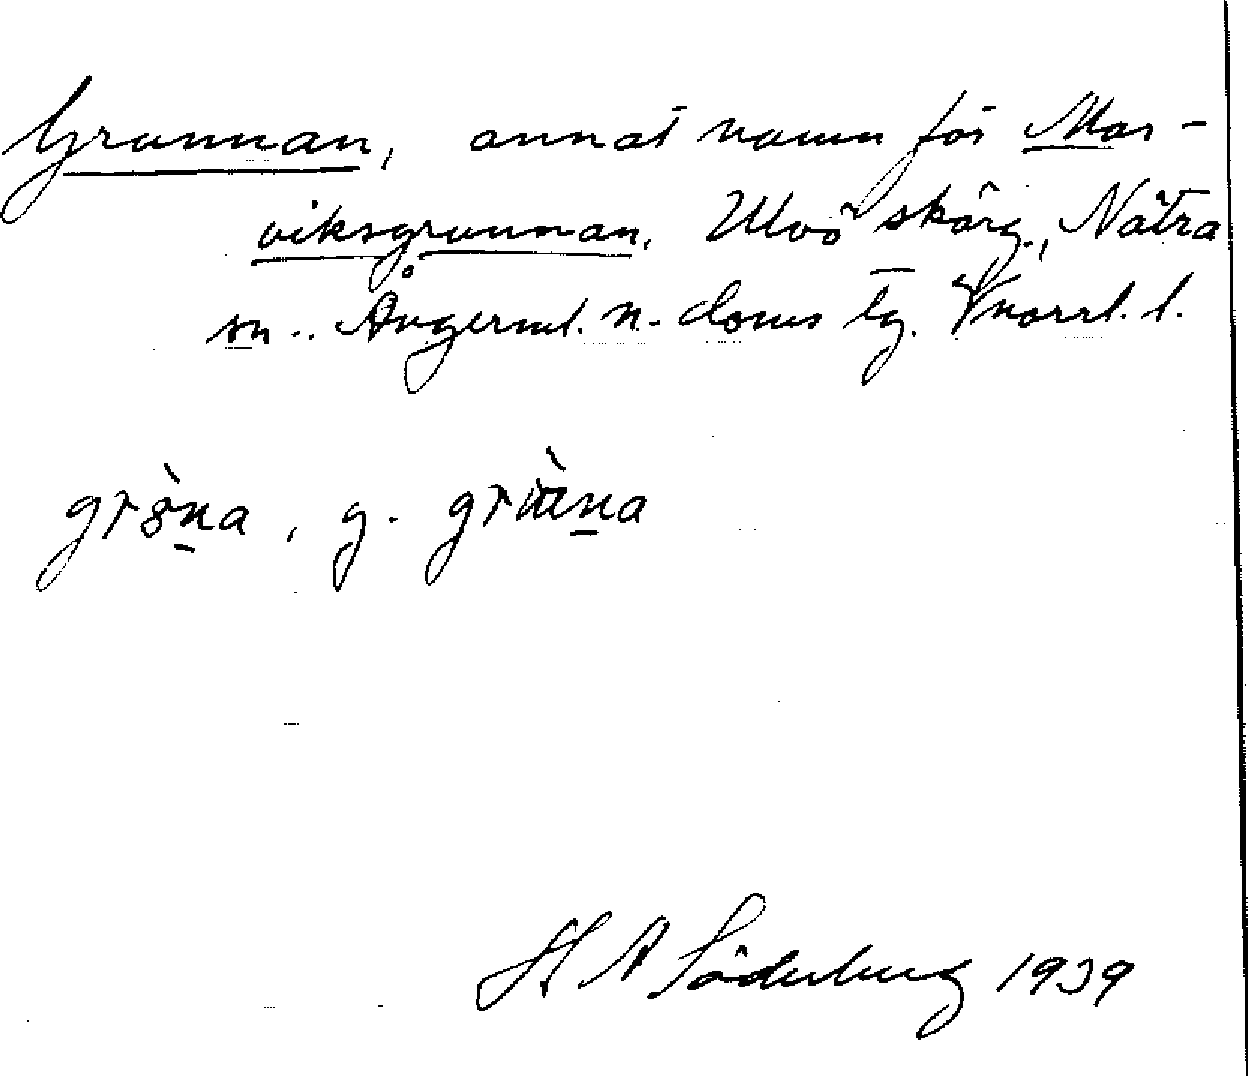 Grunnan, annat namn för Mar-
viksgrunnan, Ulvö skärg., Nätra
sn.. Ångerml. n. doms tg. Vnorrl. l.
grò̤na, g. grɯ̀na
H A Söderberg 1939